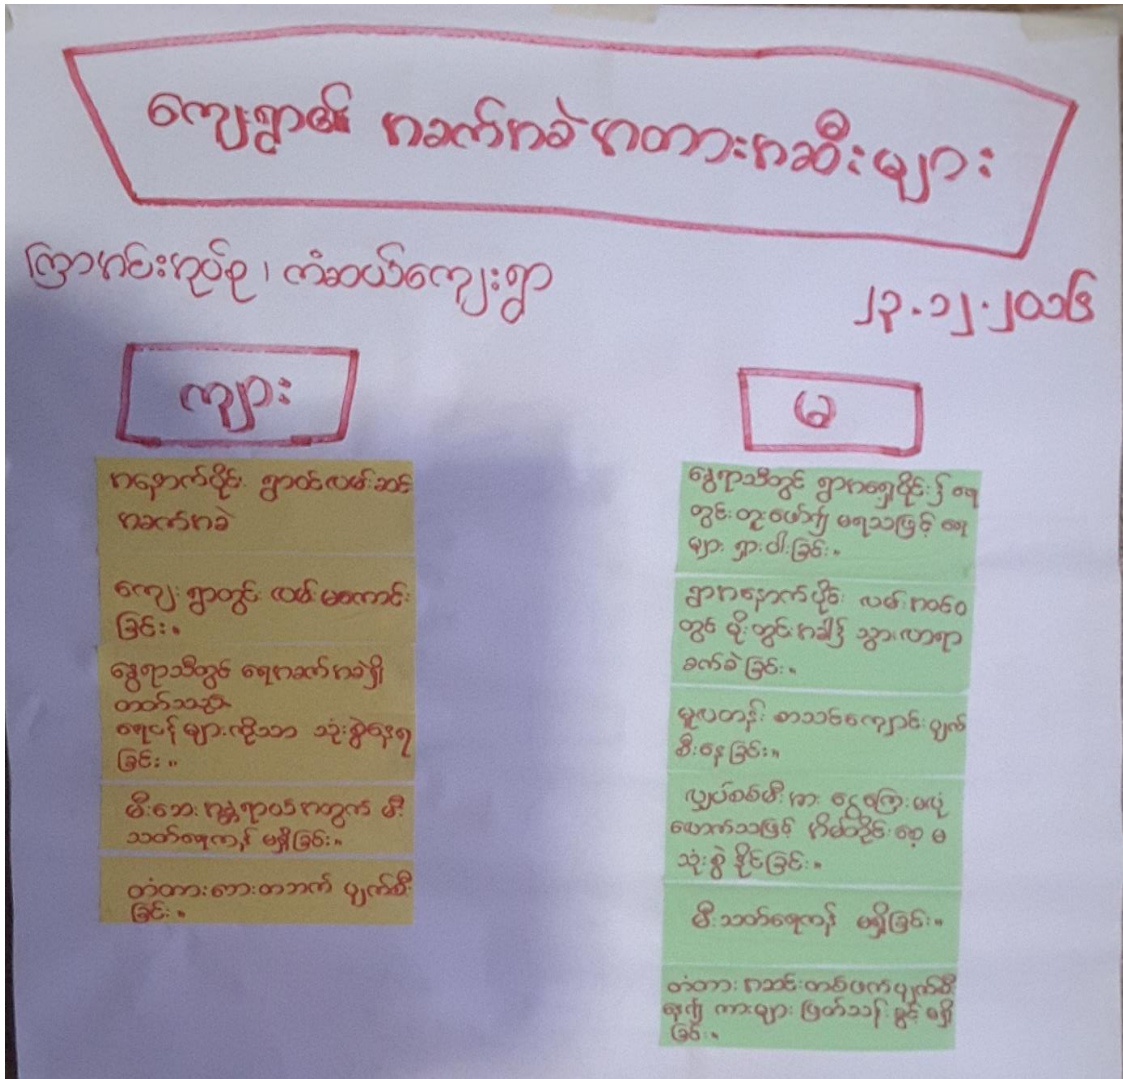 ကျေးရွာ၏ အခက်အခဲအတားအဆီးများ
ကြာအင်းအုပ်စု၊ ကံဆယ်ကျေးရွာ
၂၃.၁၂.၂၀၁၆
ကျား
အနောက်ပိုင်း ရွာဝင်လမ်းဆင်း
အခက်အခဲ
ကျေးရွာတွင်း လမ်းမကောင်း
ခြင်း။
နွေရာသီတွင် ရေအခက်အခဲရှိ
တတ်သည်
ရေငန်များကိုသာ သုံးစွဲနေရ
ခြင်း။
မီးဘေးအန္တရာယ်အတွက် မီး
သတ်ရေကန် မရှိခြင်း။
တံတားလားတဘက် ပျက်စီး
ခြင်း။
မ
နွေရာသီတွင် ရွာအရှေ့ပိုင်း၌ ရေ
တွင်းတူးဖော်၍ မရသဖြင့် ရေ
များ ရှားပါးခြင်း။
ရွာအနောက်ပိုင်း လမ်းအဝင်ဝ
တွင် မိုးတွင်းအခါ၌ သွားလာရာ
ခက်ခဲခြင်း။
မူလတန်း စာသင်ကျောင်းပျက်
စီးနေခြင်း။
လျှပ်စစ်မီးအား ငွေကြေးမလုံ
လောက်သဖြင့် အိမ်တိုင်းစေ့ မ
သုံးစွဲနိုင်ခြင်း။
မီးသတ်ရေကန် မရှိခြင်း။
တံတားအဆင်းတစ်ဖက်ပျက်စီး
နေ၍ ကားများ ဖြတ်သန်းခွင့် မရှိ
ခြင်း။